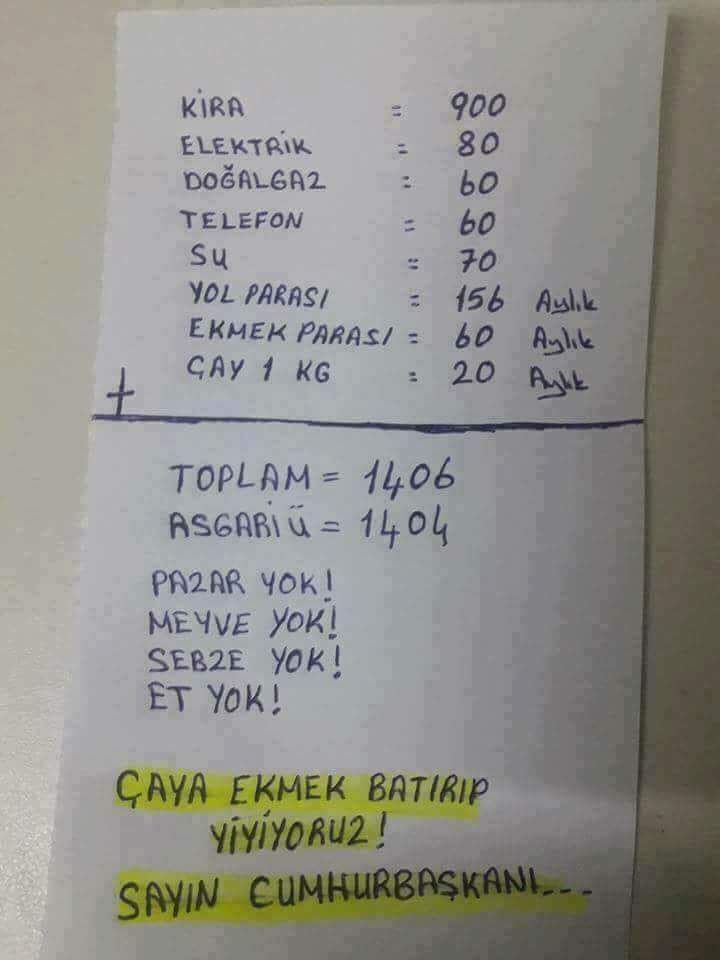 KİRA = 900
ELEKTRİK = 80
DOĞALGAZ = 60
TELEFON = 60
SU = 70
YOL PARASI = 156 Aylık
EKMEK PARASI = 60 Aylık
ÇAY 1 KG = 20 Aylık
+
TOPLAM = 1406
ASGARİ Ü = 1404
PAZAR YOK!
MEYVE YOK!
SEBZE YOK!
ET YOK!
ÇAYA EKMEK BATIRIP
YİYİYORUZ!
SAYIN CUMHURBAŞKANI...